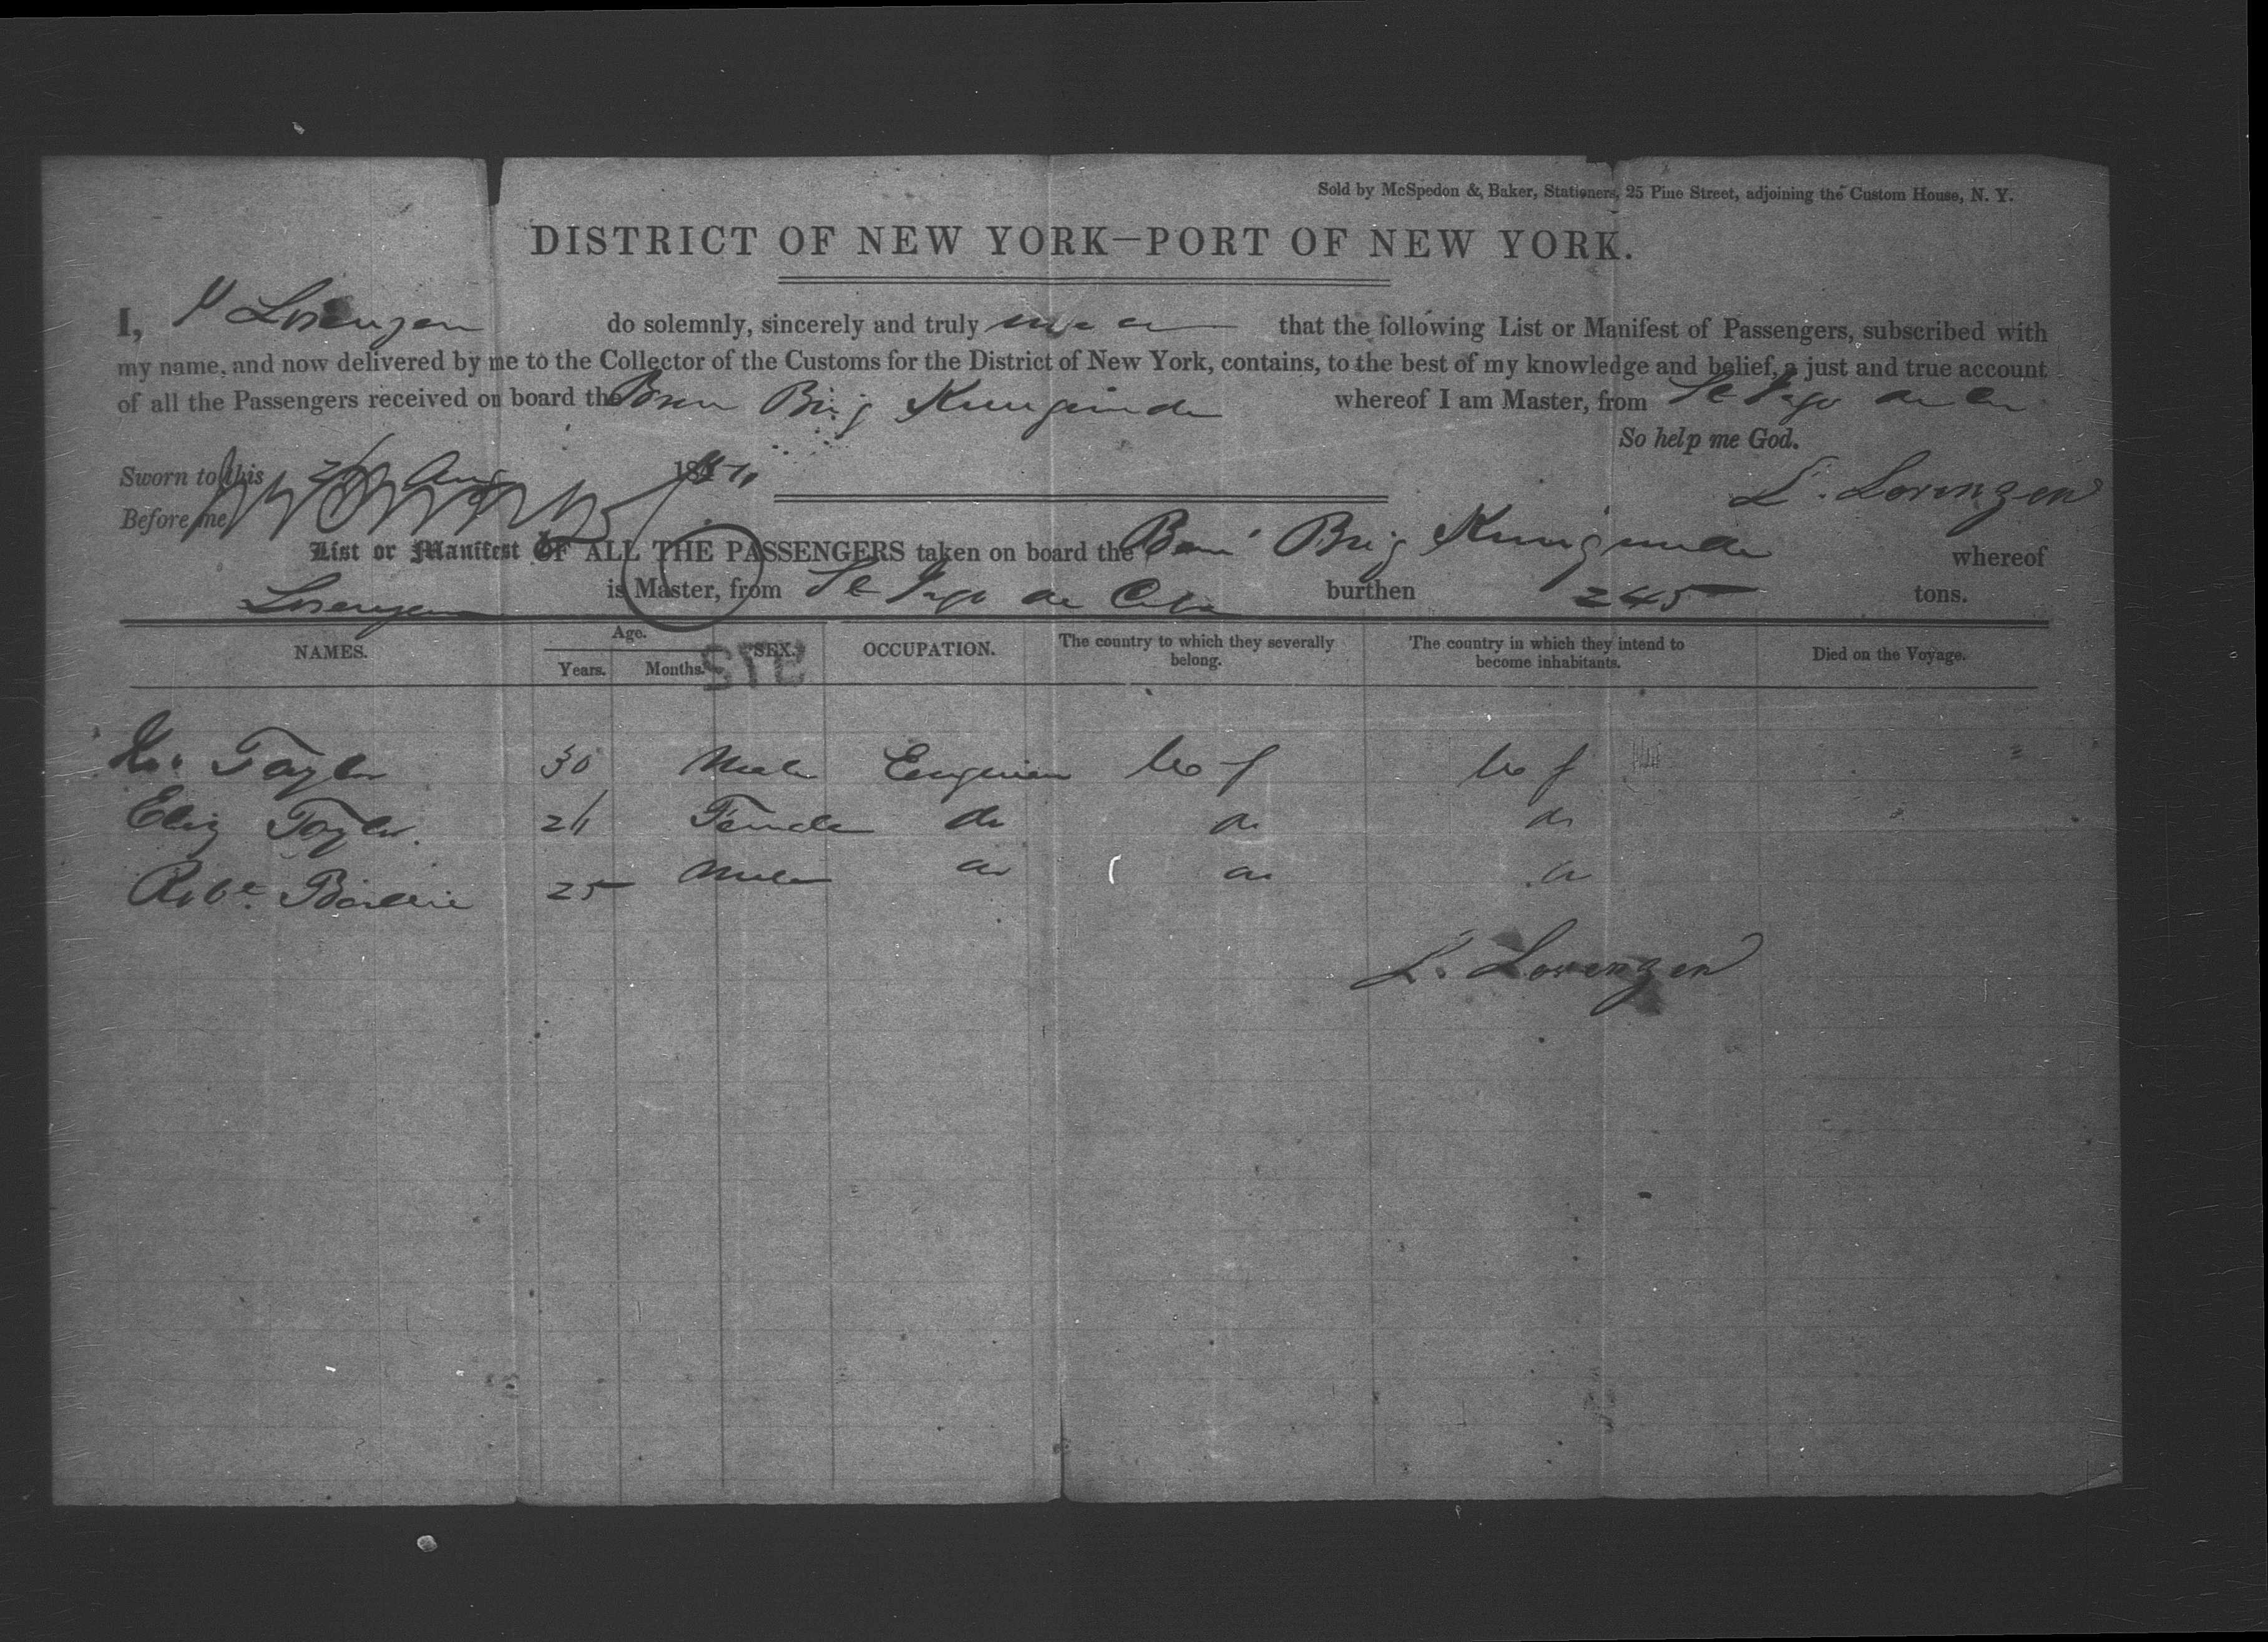 Sold by McSpedon & Baker, Stationers, 25 Pine Street, adjoining the Custom House, N. Y.
DISTRICT OF NEW YORK—PORT OF NEW YORK.
I, Lorenzen do solemnly, sincerely and truly that the following List or Manifest of Passengers, subscribed with
my name, and now delivered by me to the Collector of the Customs for the District of New York, contains, to the best of my knowledge and belief, a just and true account
of all the Passengers received on board the Brem Brig Kunigunde whereof I am Master, from St Jago de Cu
So help me God.
Sworn to this Aug 18
L. Lorenzen
Before me
List or Manifest OF ALL THE PASSENGERS taken on board the Brem Brig Kunigunde whereof
Lorenzen is Master, from St Jago de Cuba burthen 245 tons.
NAMES. Age. Years. Months. SEX. OCCUPATION. The country to which they severally belong. The country in which they intend to become inhabitants. Died on the Voyage.
972
Taylor 30 Male Engineer U S U S
Eliz Taylor. Female do do do
Robt. 25 Male do do do
L. Lorenzen